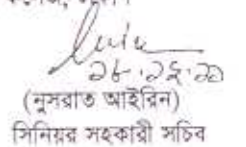 ২৮.১২.২০
(নুসরাত আইরিন)
সিনিয়র সহকারী সচিব